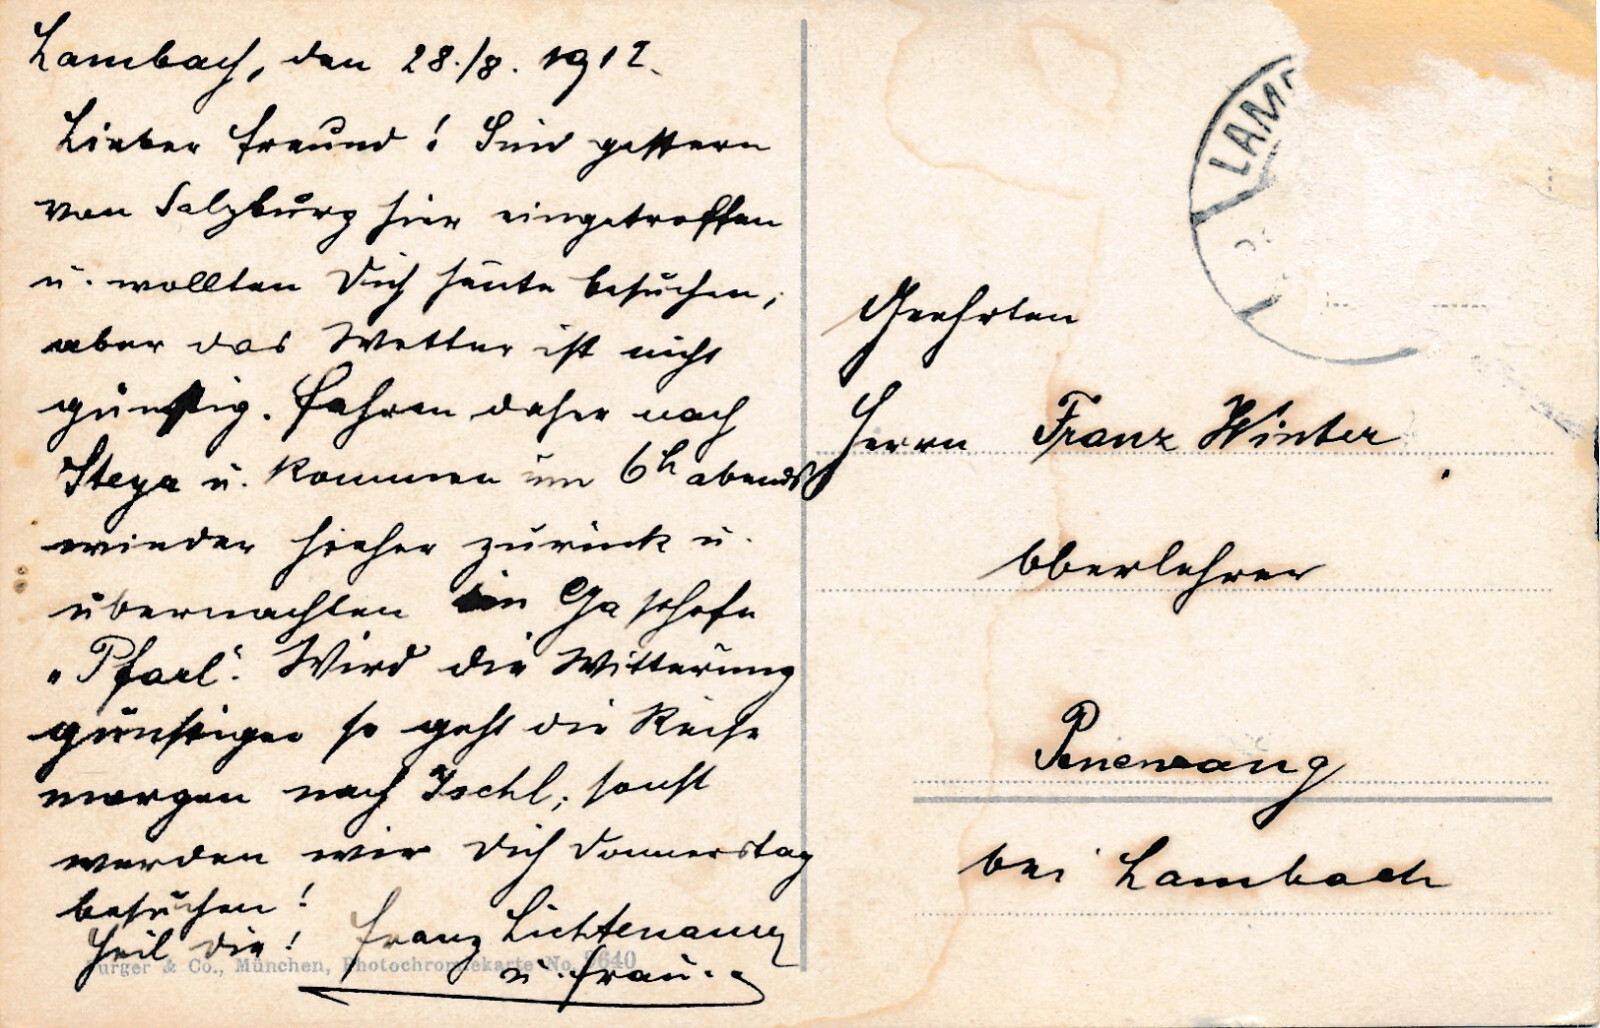 Lambach, den 28./8. 1912.
Lieber Freund! Sind gestern
von Salzburg hier eingetroffen
u. wollten Dich heute besuchen,
aber das Wetter ist nicht
günstig. Fahren daher nach
Steyr u. kommen um 6h abends
wieder hieher zurück u.
übernachten in Gasthofe
"Pfarl". Wird die Witterung
günstiger so geht die Reise
morgen nach Ischl, sonst
werden wir Dich Donnerstag
besuchen!
Heil Dir! Franz Lichtenauer
u. Frau.
Purger & Co., München, Photochromiekarte No. 5640
LAMB
Geehrten
Herrn Franz Winter
Oberlehrer
Penewang
bei Lambach